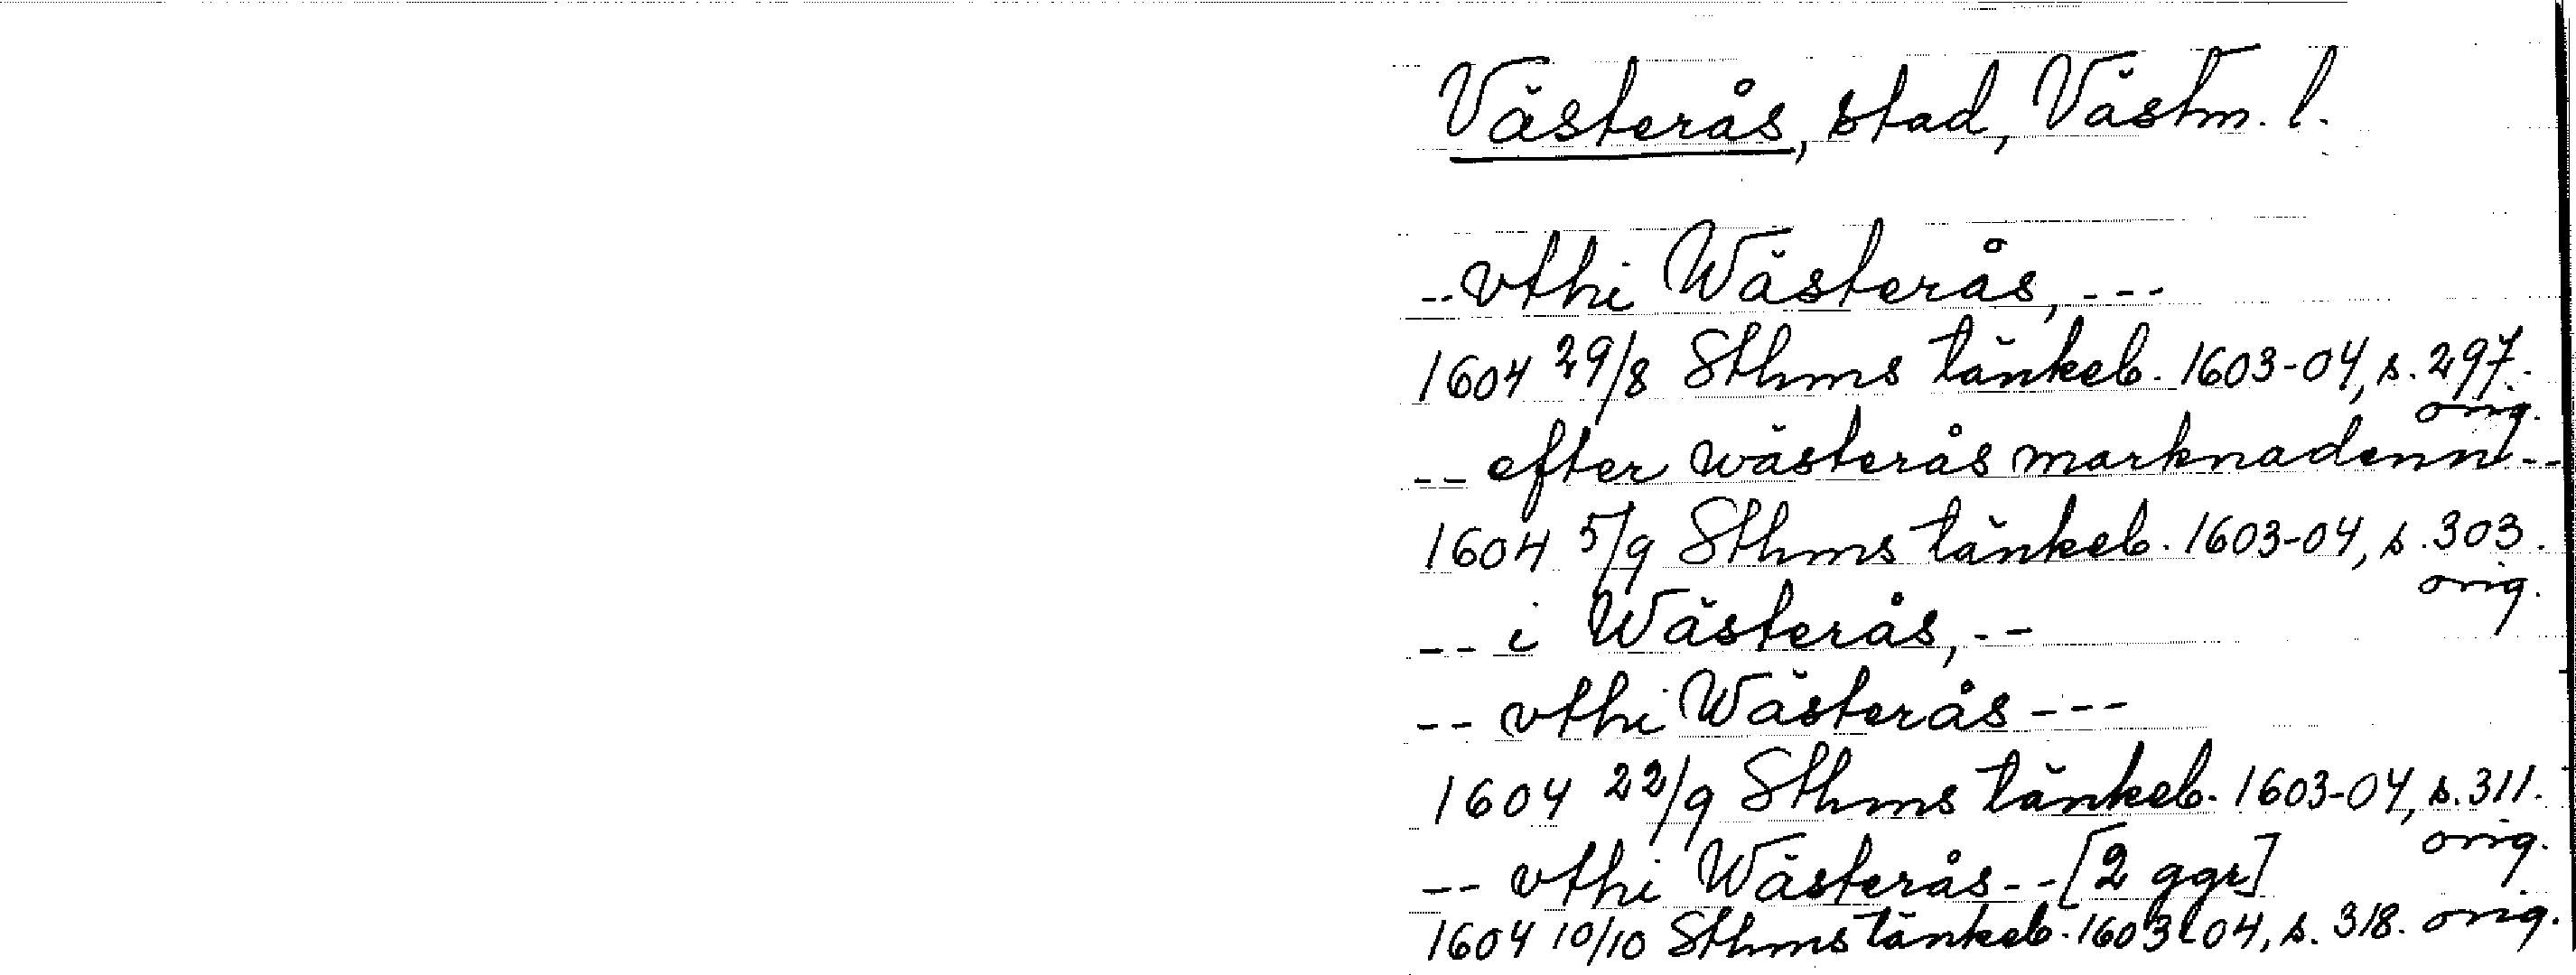 Västerås, stad, Västm. l.
-- vthi Wästerås, ---
1604 29/8 Sthms tänkeb. 1603-04, s. 297.
orig.
-- efter wästerås marknadenn --
1604 5/9 Sthms tänkeb. 1603-04, s. 303.
orig.
-- i Wästerås, --
-- vthi Wästerås ---
1604 22/9 Sthms tänkeb. 1603-04, s. 311.
orig.
-- vthi Wästerås -- [2 ggr]
1604 10/10 Sthms tänkeb. 1603-04, s. 318. orig.